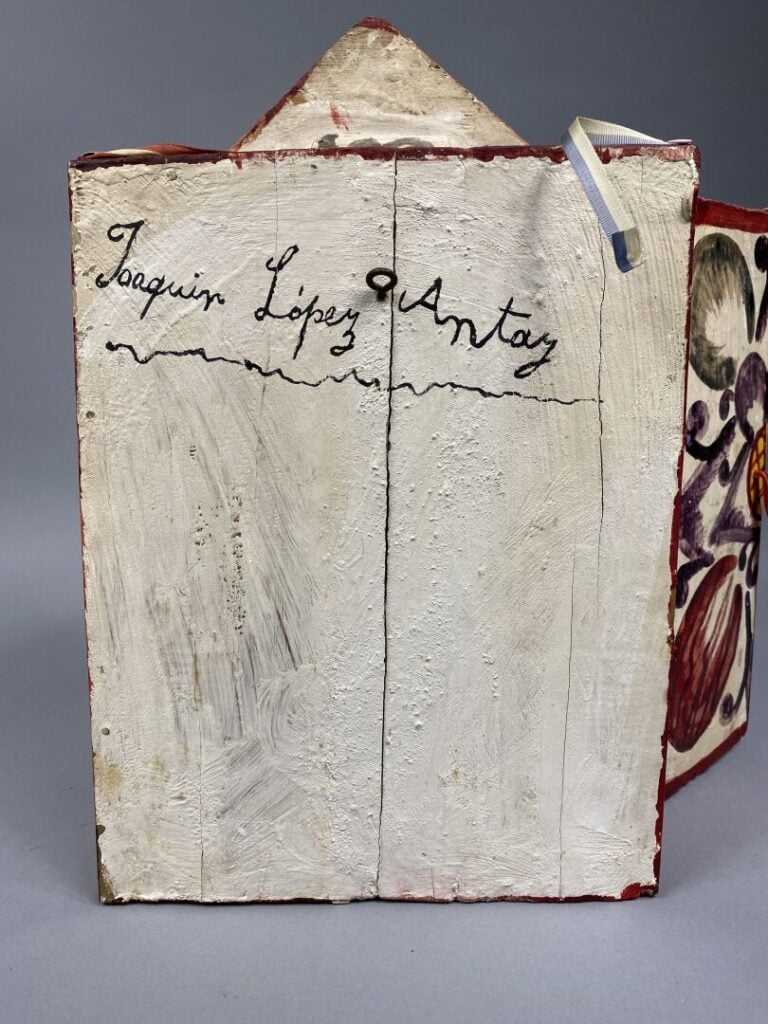 Joaquin López Antay